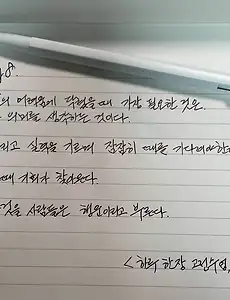 8.
의 어려움에 막혔을 때 가장 필요한 것은
의미를 생각하는 것이다.
리고 실력을 기르며 잠잠히 때를 기다려야한
때 기회가 찾아온다.
것을 사람들은 행운이라고 부른다.
<하루 한장 고전수업,